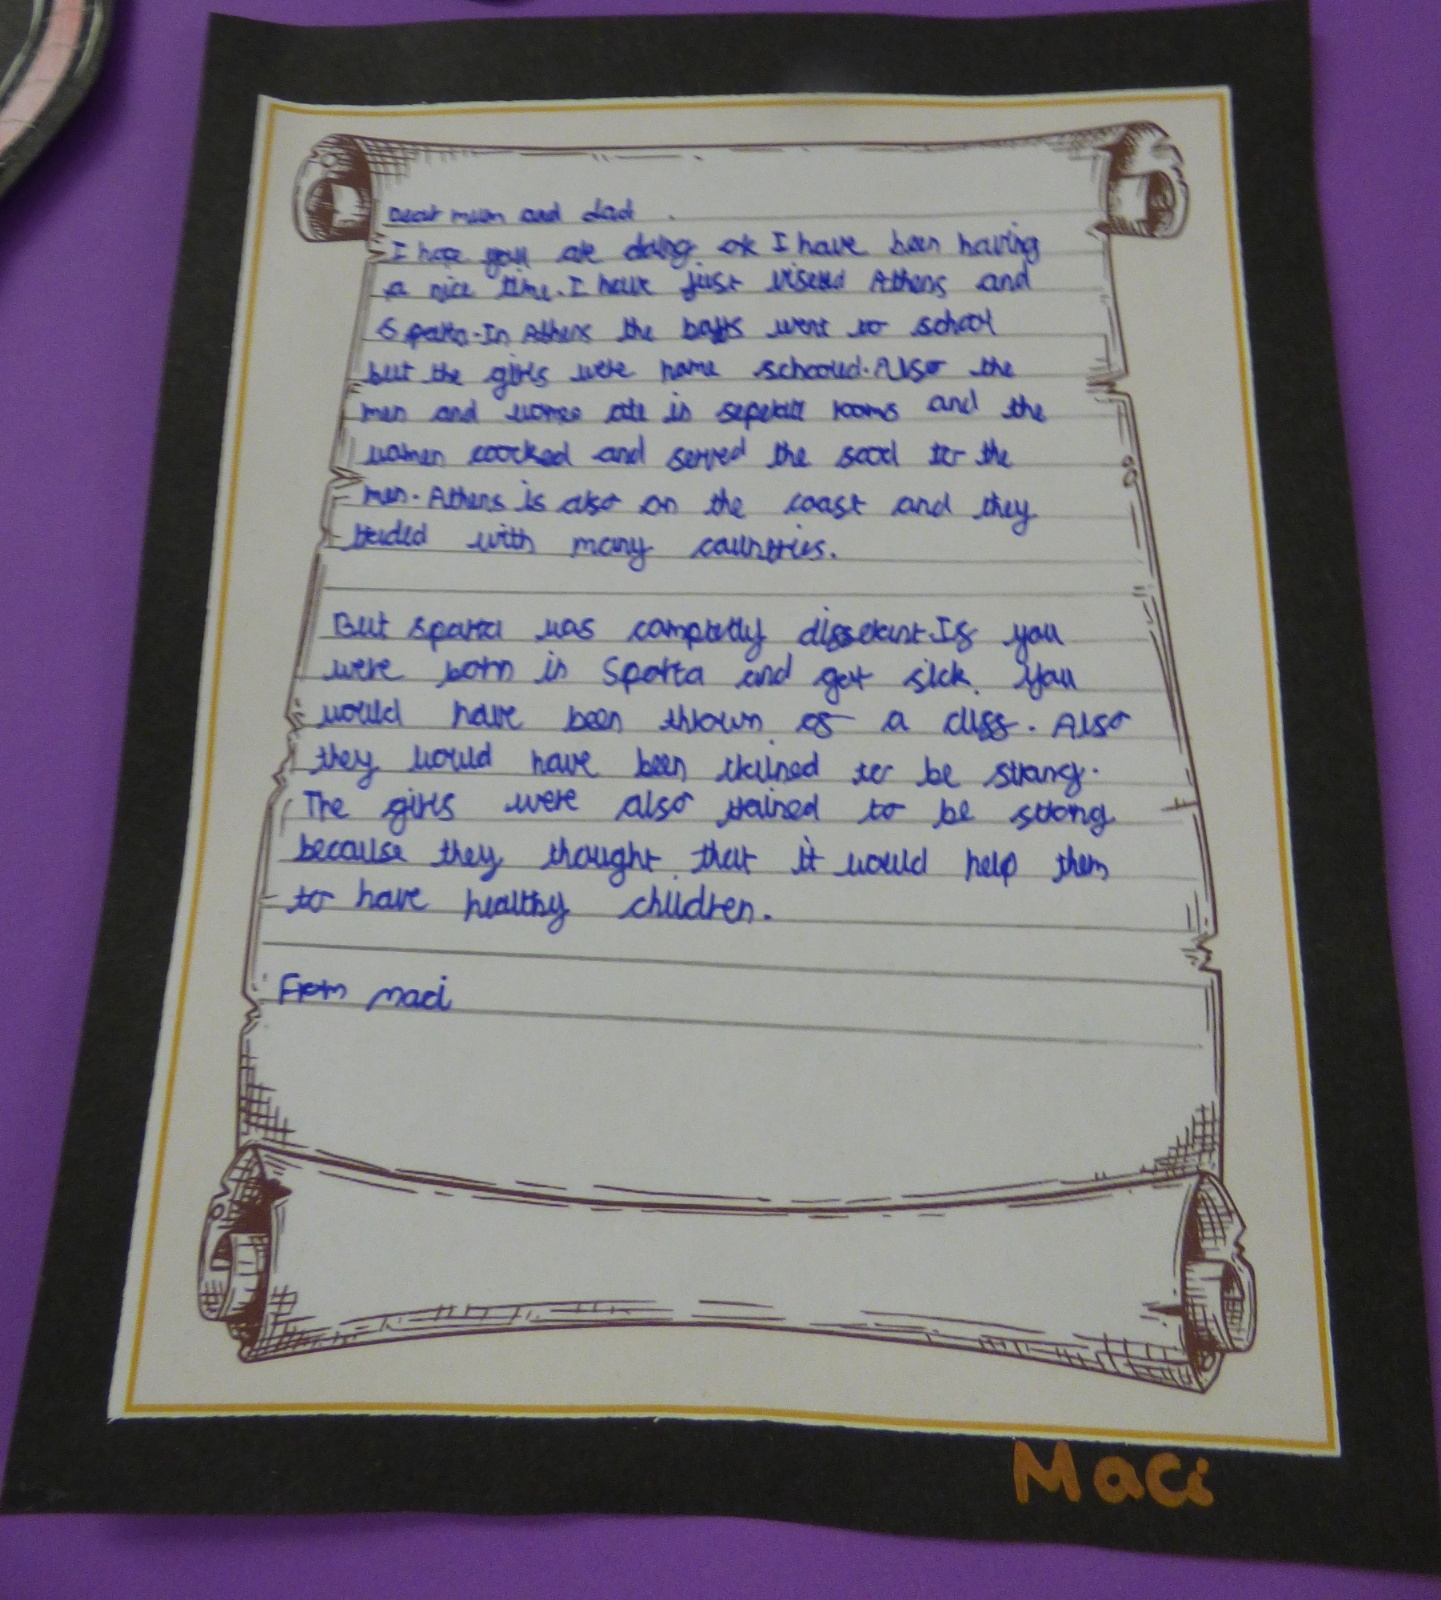 Dear mum and dad
I hope you are doing ok I have been having
a nice time. I have just viseted Athens and
Sparta. In Athens the boys went to school
but the girls were home schooled. Also the
men and women ate in seperate rooms and the
women coocked and served the food to the
men. Athens is also on the coast and they
traded with many countries.
But Sparta was completly different. If you
were born in Sparta and got sick you
would have been thrown of a cliff. Also
they would have been trained to be strong.
The girls were also trained to be strong
because they thought that it would help them
to have healthy children.
From maci
Maci